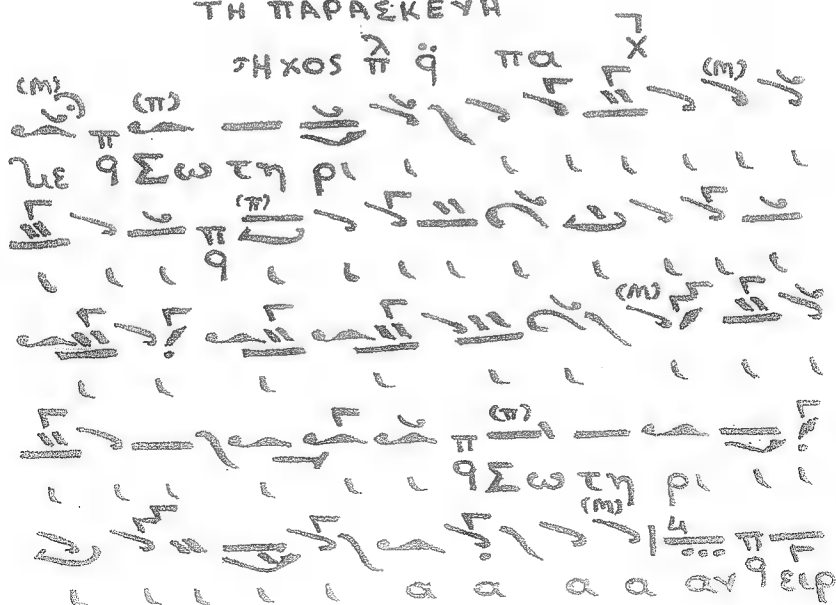 ΤΗ ΠΑΡΑΣΚΕΥΗ
Ηχος λ π q πα χ
(Μ) (π) (Μ)
με π q Σω τη ρι ι ι ι ι ι ι ι
(π)
ι ι ι π q ι ι ι ι ι ι ι ι ι
(Μ)
ι ι ι ι ι ι ι ι ι
(π)
ι ι ι ι ι ι π q Σω τη ρι ι ι
(Μ)
ι ι ι ι ι α α α α αν π q ειρ